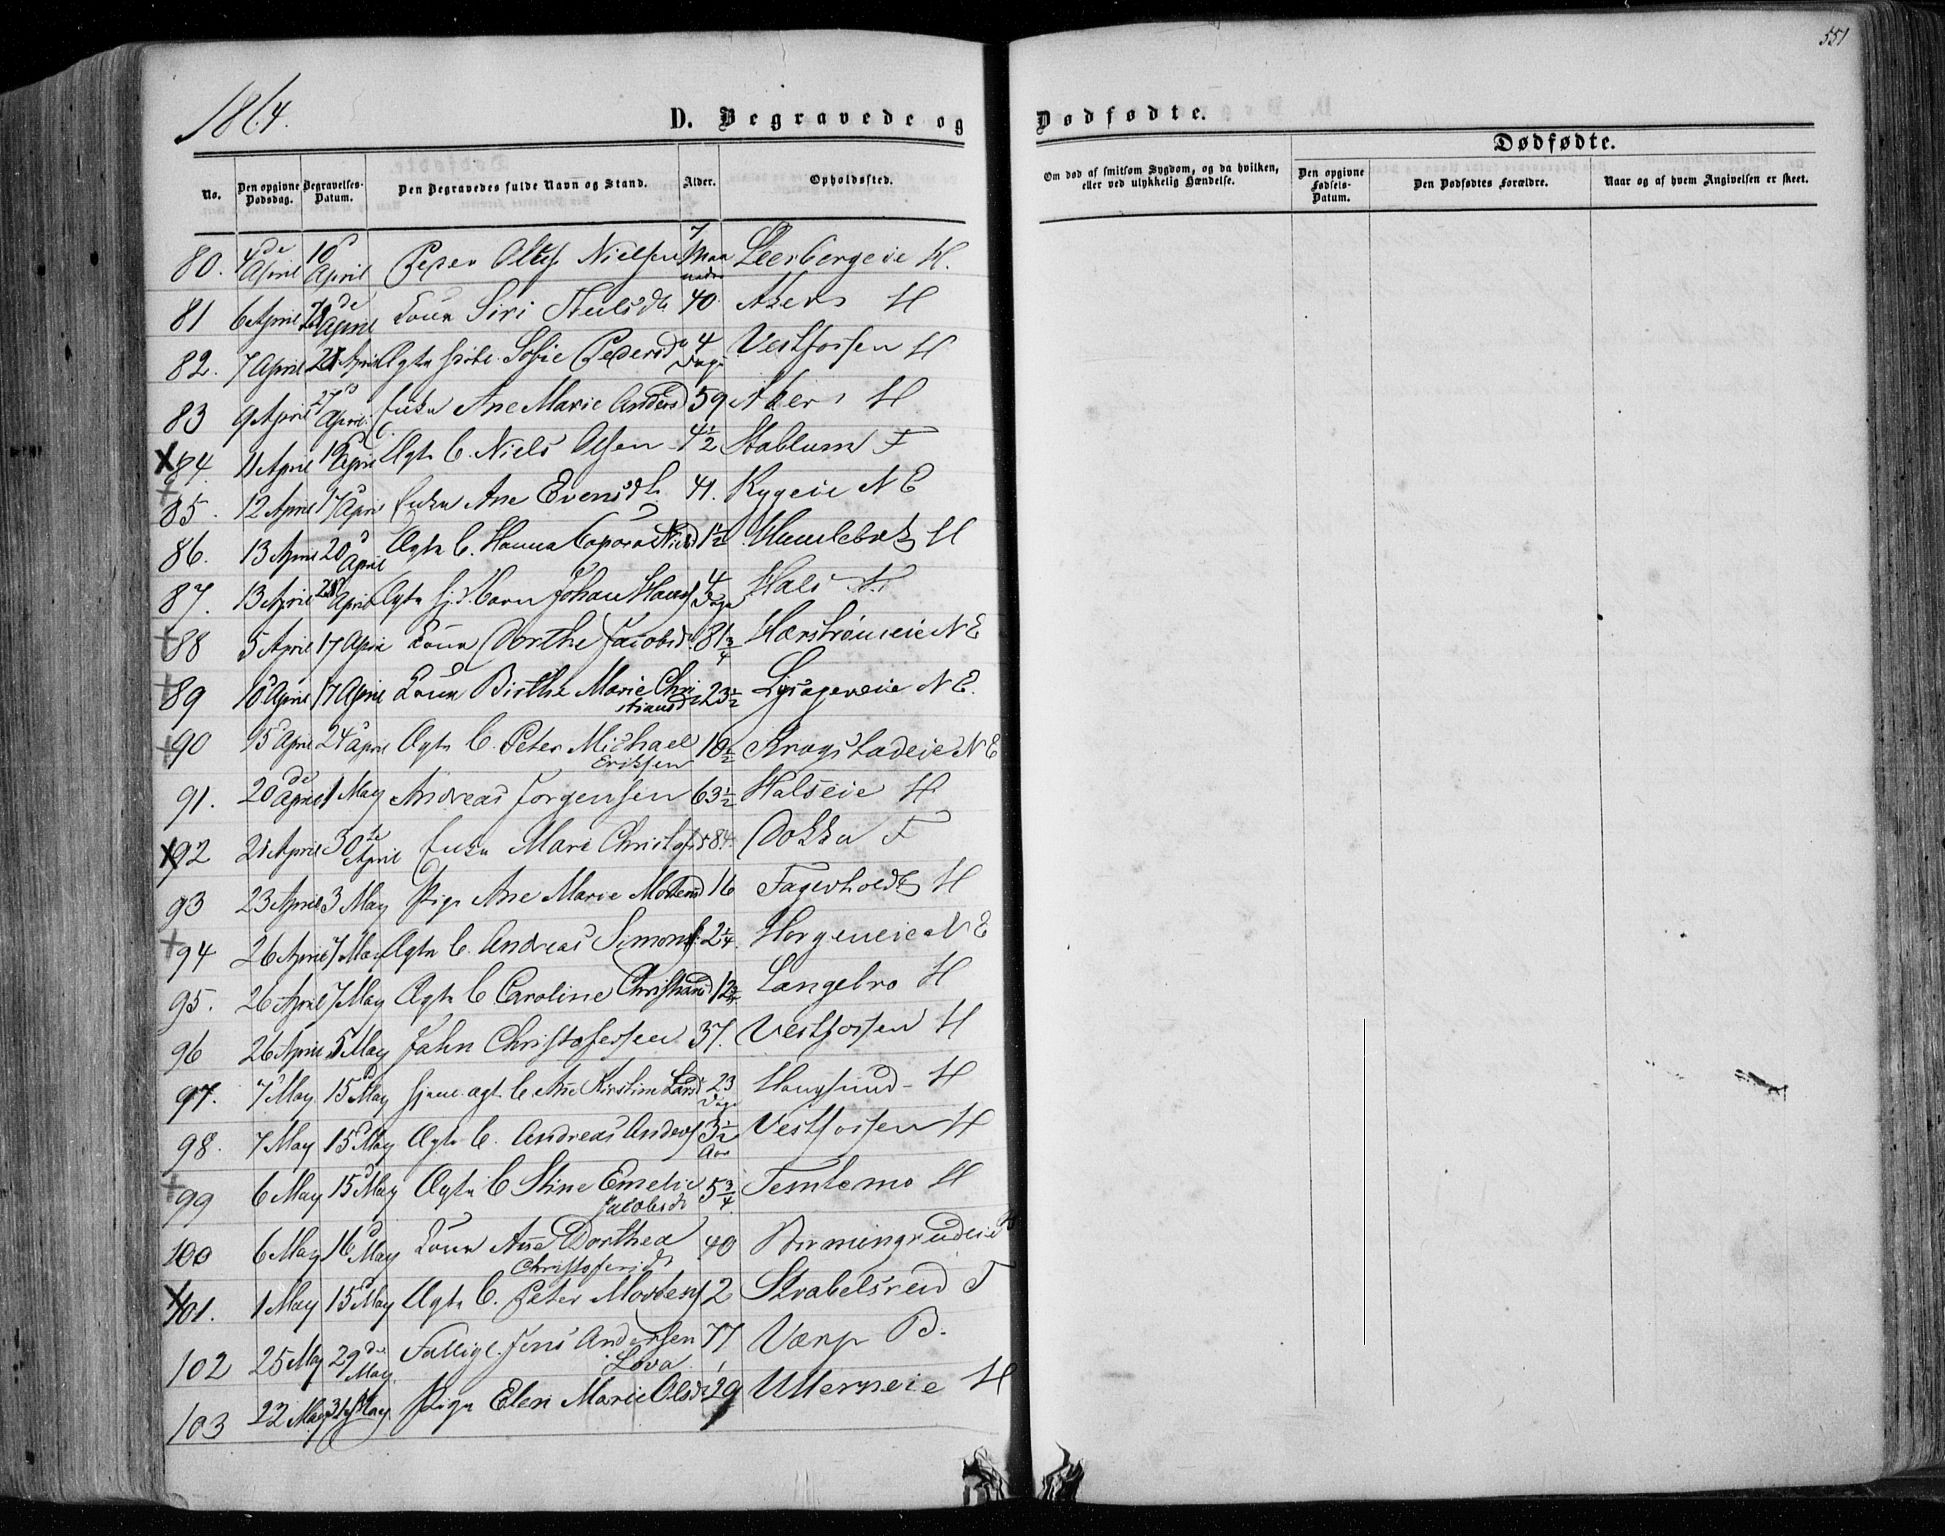 551
1864.
D. Begravede og Dødfødte.
Dødfødte.
No.
Den opgivne Dødsdag.
Begravelses-Datum.
Den Begravedes fulde Navn og Stand.
Alder.
Opholdssted.
Om død af smitsom Sygdom, og da hvilken, eller ved ulykkelig Hændelse.
Den opgivne Fødsels-Datum.
Den Dødfødtes Forældre.
Naar og af hvem Angivelsen er skeet.
80. 4de April 10 April Peder Nielsen 7 Maaneder Leerbergeie H.
81 6 April April Kone Siri 40. Aker H
82. 7 April April Ægte Sofie Pedersd 4 Dage Vestfossen H
83 9 April 27 April Enke Ane Marie Andersd 59 Aker H
84. 11 April 19 April Ægte B. Niels Olsen 4½ Stablum F
85. 12 April 17 April Enke Ane Evensdt 41. Rygeie N E
86. 13 April 20 April Ægte B. Hanna Nielsd 1½ Humlebæk H
87. 13 April April Ægte hj. d. Barn Johan Hans 4 Dage Hals
88 5 April 17 April Kone Dorthe Jacobsd. 81¾ Hærstrømeie N E
89 10 April 17 April Kone Birthe Marie Christiansd 23½ N E.
90 15 April 24 April Ægte B. Peter Michael Eriksen 10½ Krogstadeie N E
91. 20de April 1 May Andreas Jørgensen 63½ Halseie H
92 21 April 30te April Enke Mari Christofsd 84. Dokka F
93 23 April 3 May Pige Ane Marie Mortensd 16 Fagerholdt H
94 26 April 7 May Ægte B. Andreas Simons. 2¼. Horgeneie N E
95. 26 April 7 May Ægte B Caroline Christiansd Langebro H
96 26 April 5 May John Christofersen 37. Vestfossen H
97. 7 May 15 May hjem. ægt. B Ane Kirstine Larsd 23 Dage Hougsund H
98. 7 May 15 May Ægte B. Andreas Anders 3½ Aar Vestfossen H
99 6 May 15 May Ægte B Stine Emelie Jacobsdt 5¾ Temtemo H
100 6 May 16 May Kone Ane Dorthea Christofersdt 40
101. 1 May 15 May Ægte B. Peter Mortens 2 Strabelsrud F
102 25 May 29de May Fattigl. Jens Andersen Lova 77 Værp B.
103 22 May 31 May Pige Elen Marie Olsdt 29 Ullerneie H